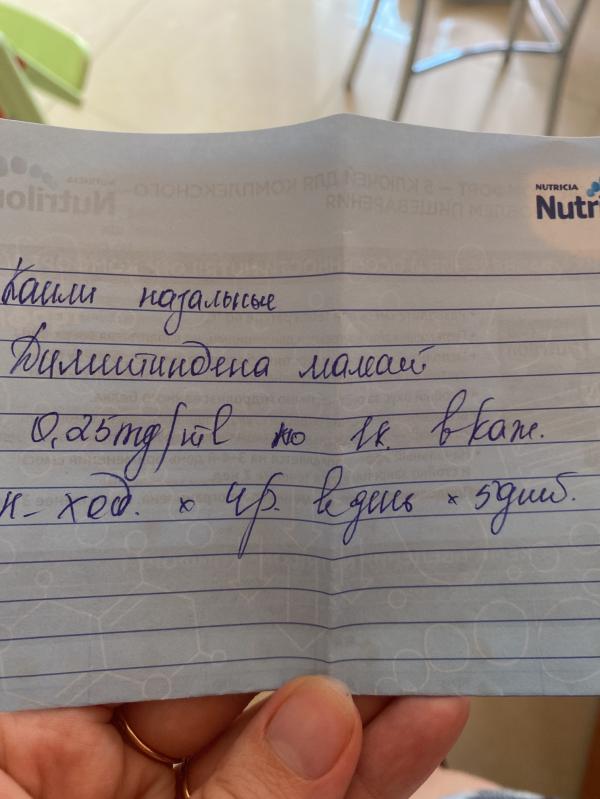 NUTRICIA
Nutri
Капли назальные
Диметиндена малеат
0,25mg/ml по 1к. в каж.
н-ход. x 4р. в день x 5 дней.